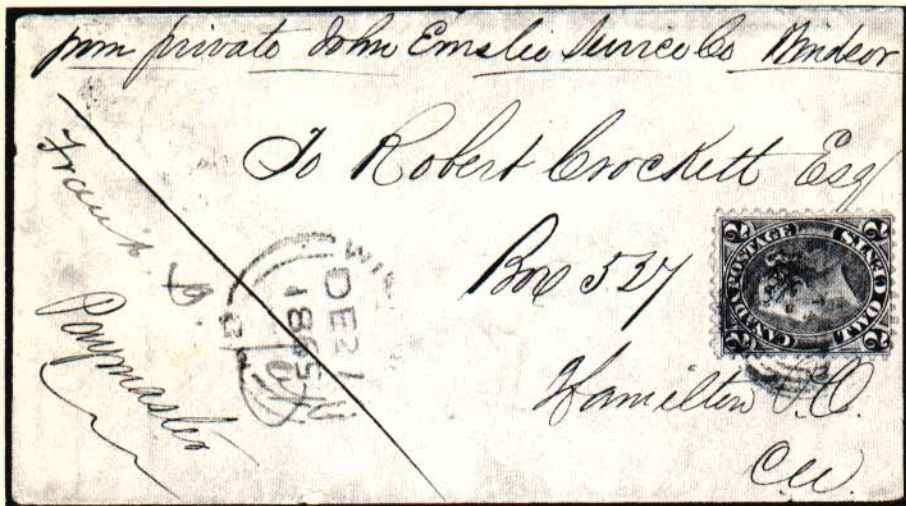 from private John Emslie Service Co Windsor
To Robert Crockett Esq
Box 527
Hamilton P.O.
C.W.
Francis D.
Paymaster
DE 21
1865
CANADA POSTAGE
TWO CENTS
2 2 2 2